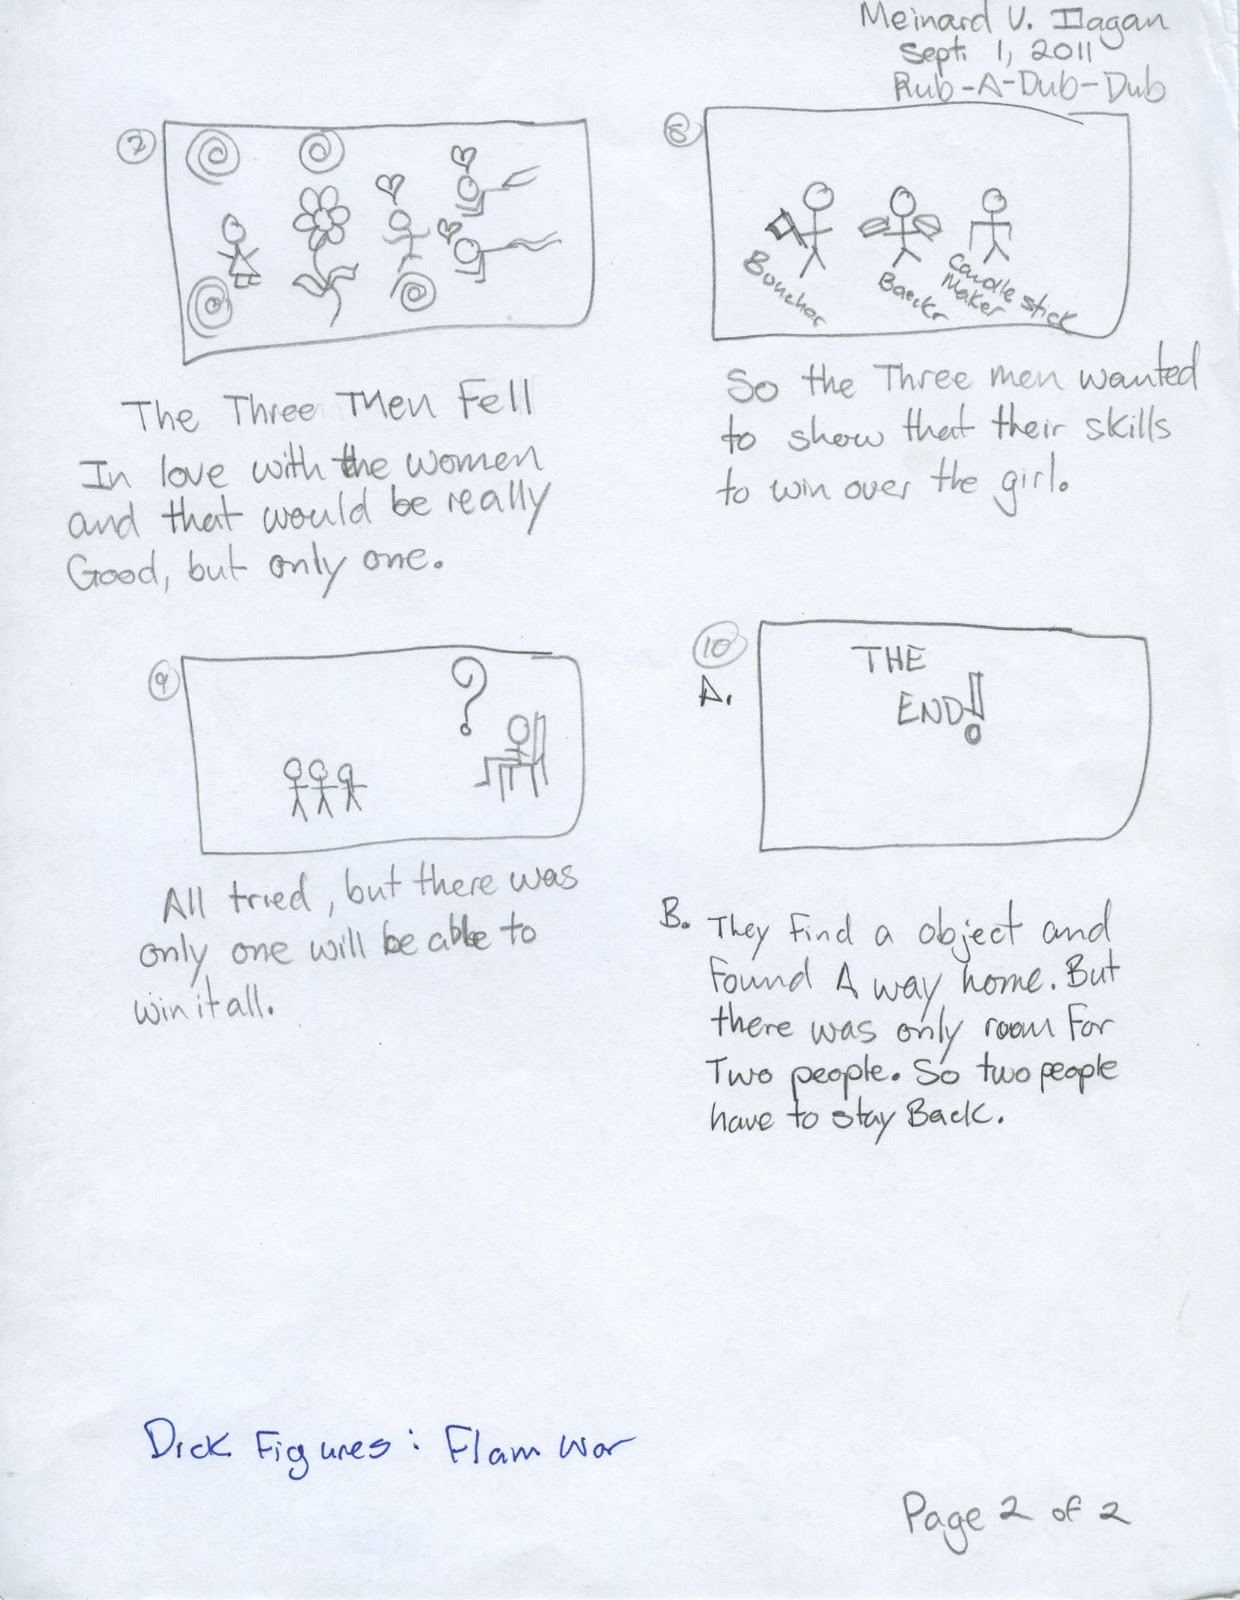 Meinard V. Ilagan
Sept. 1, 2011
Rub-A-Dub-Dub
7
The Three Men Fell
In love with the women
and that would be really
Good, but only one.
8
Boucher
Baeckr
Candle stick
Maker
So the Three men wanted
to show that their skills
to win over the girl.
9
?
All tried, but there was
only one will be able to
win it all.
10
A.
THE
END!
B. They Find a object and
Found A way home. But
there was only room For
Two people. So two people
have to stay Back.
Dick Figures: Flam war
Page 2 of 2